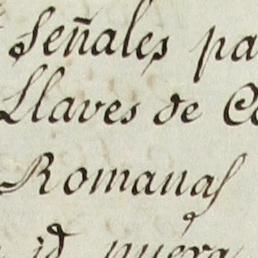 Señales pa
Llaves de C
Romanas
id nueva